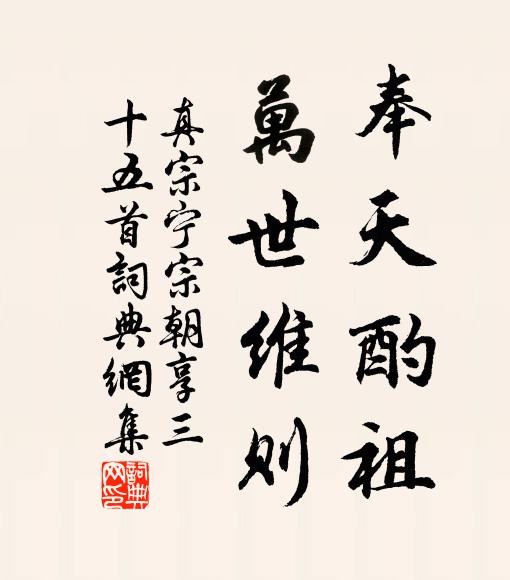 奉天酌祖
萬世維則
真宗宁宗朝享三
十五首詞典網集
詞典
网印